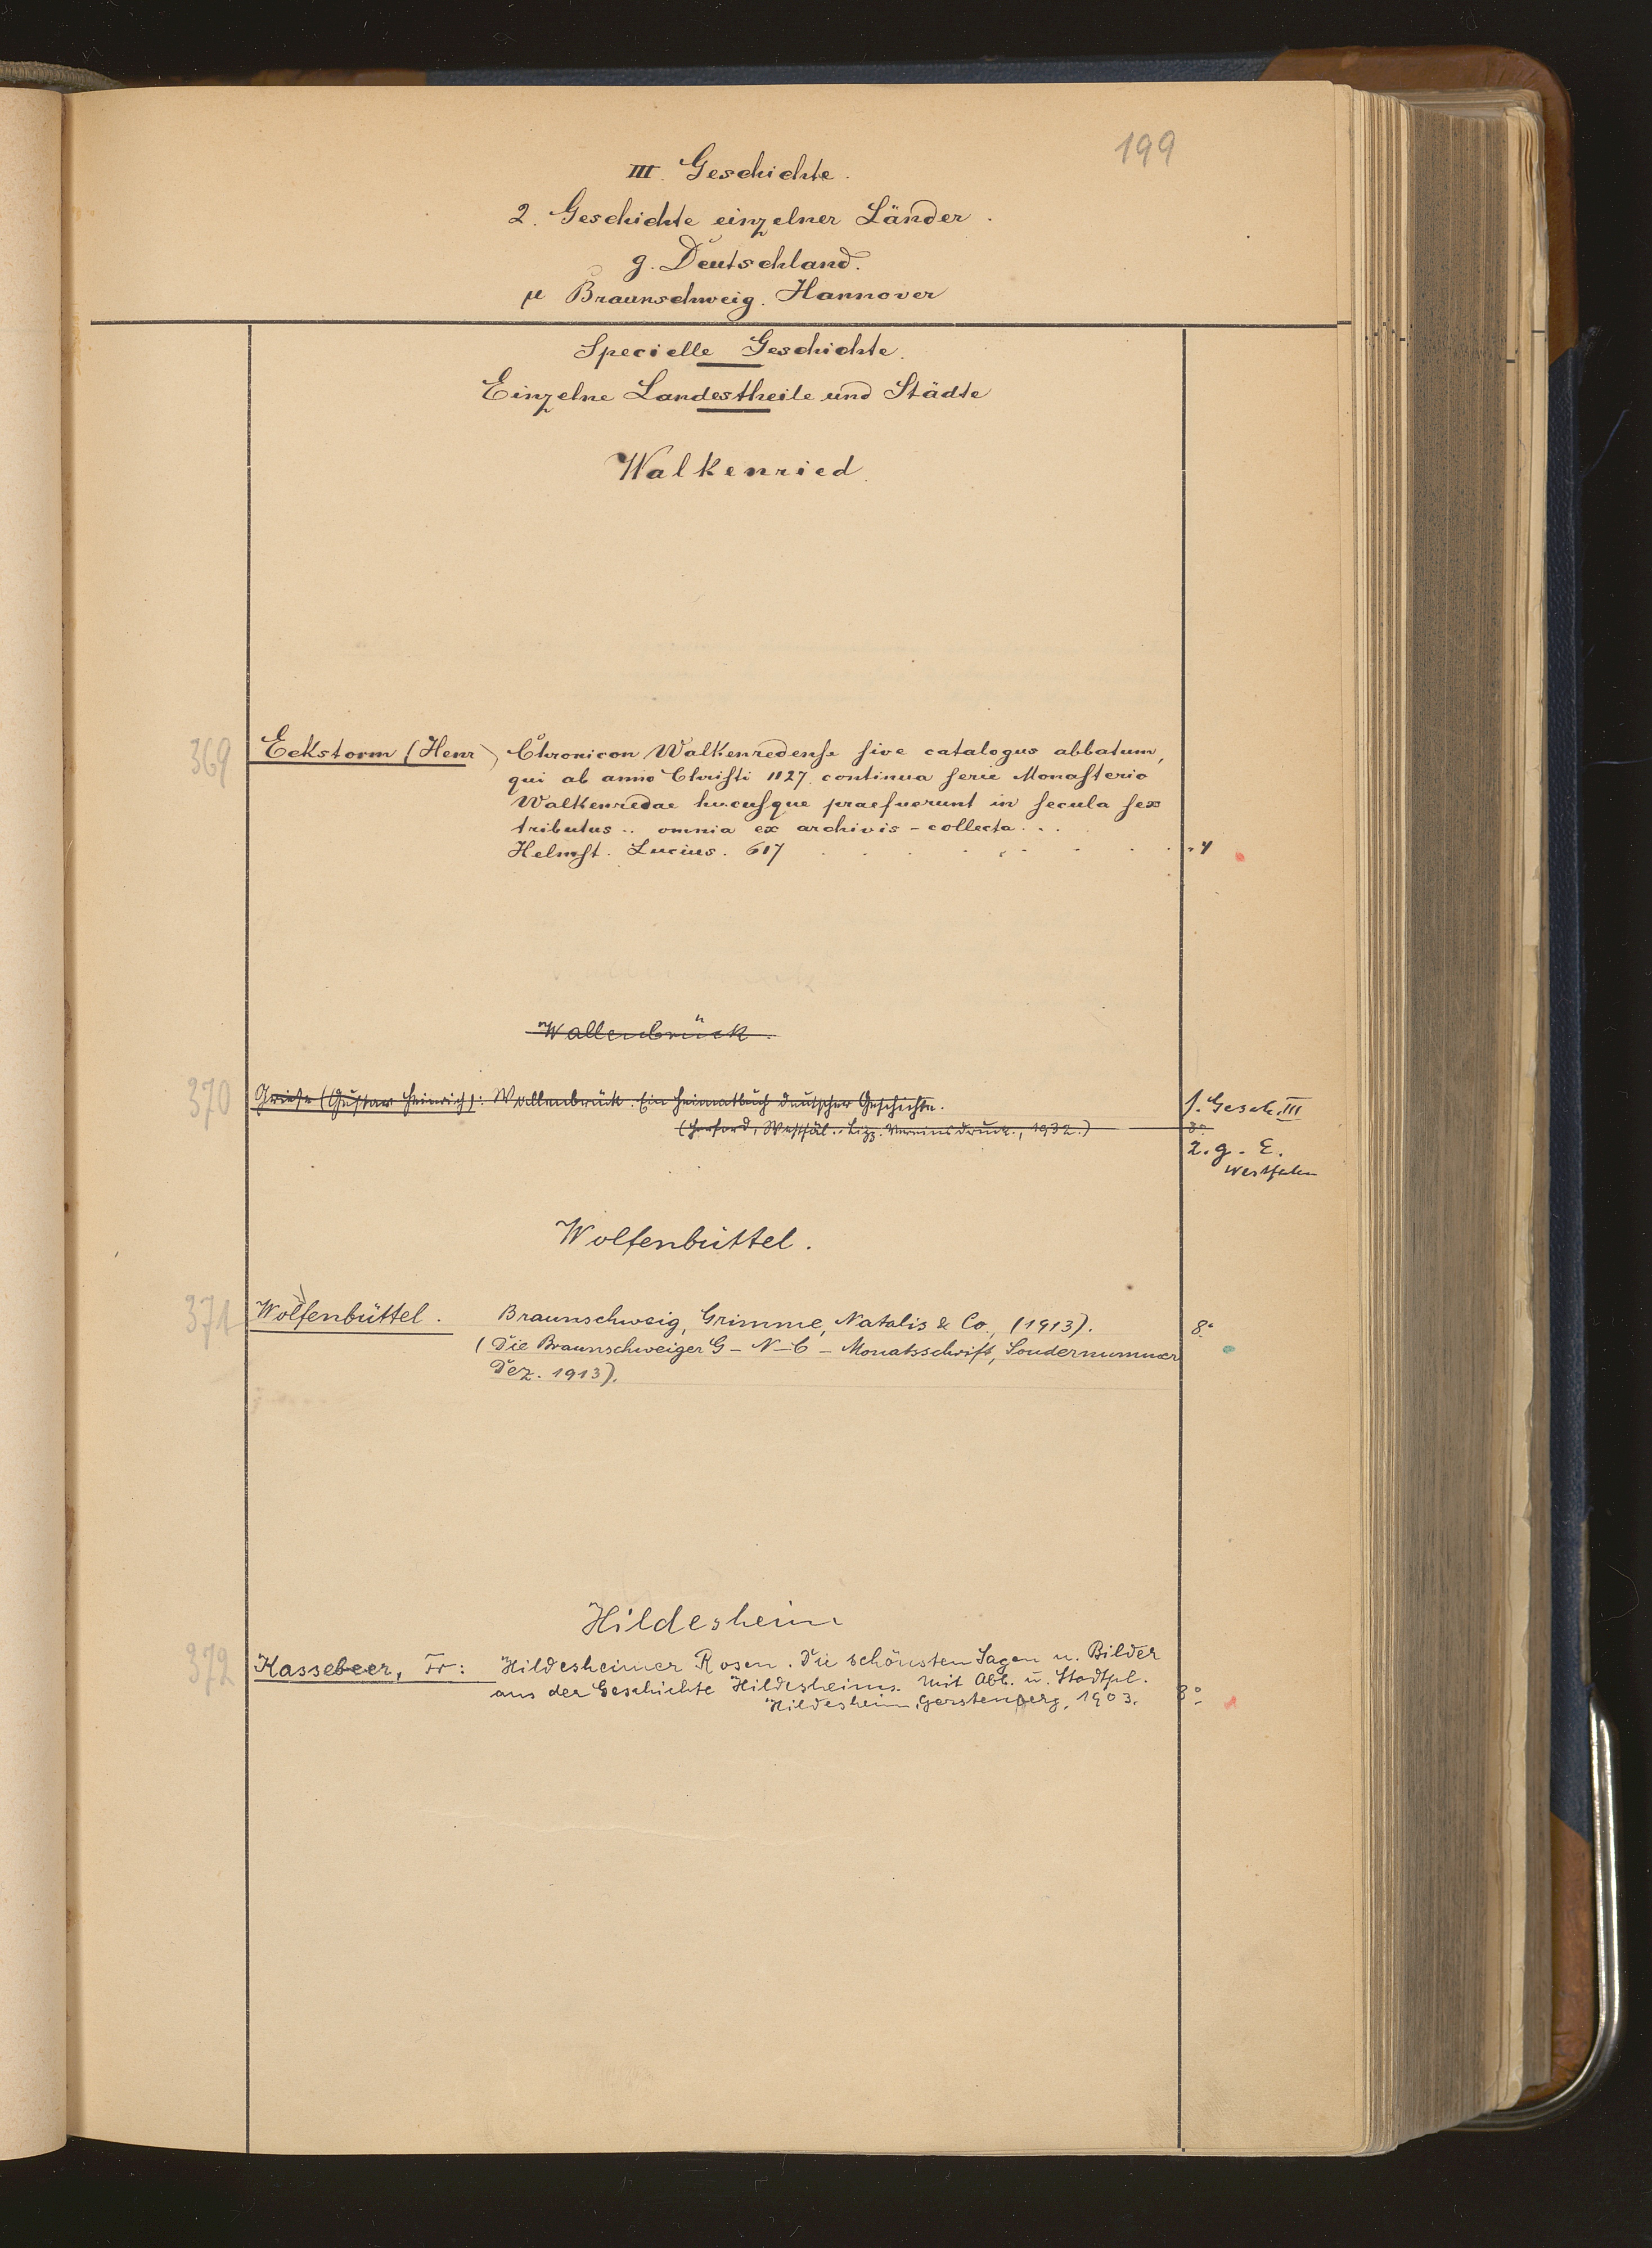 199
III. Geschichte.
2. Geschichte einzelner Länder.
g. Deutschland.
μ Braunschweig. Hannover
Specielle Geschichte.
Einzelne Landestheile und Städte
Walkenried.
369 Eckstorm (Henr) Chronicon Walkenredense sive catalogus abbatum,
qui ab anno Christi 1127. continua serie Monasterio
Walkenredae hucusque praefuerunt in secula sex
tributus .. omnia ex archivis - collecta. . .
Helmst. Lucius. 617 . . . . . . . . 4
Wallenbrück.
370 Griese (Gustav Heinrich): Wallenbrück. Ein Heimatbuch deutscher Geschichte. s. Gesch. III
(Herford, Westfäl. Vereinsdruck., 1932.) 8°
2. g. ε.
Westfalen
Wolfenbüttel.
371 Wolfenbüttel. Braunschweig, Grimme, Natalis & Co., (1913). 8°
(Die Braunschweiger G-N-C-Monatsschrift, Sondernummer
Dez. 1913).
Hildesheim
372 Kassebeer, Fr: Hildesheimer Rosen. Die schönsten Sagen u. Bilder
aus der Geschichte Hildesheims. Mit Abb. u. Stadtpl.
Hildesheim, Gerstenberg, 1903. 8°